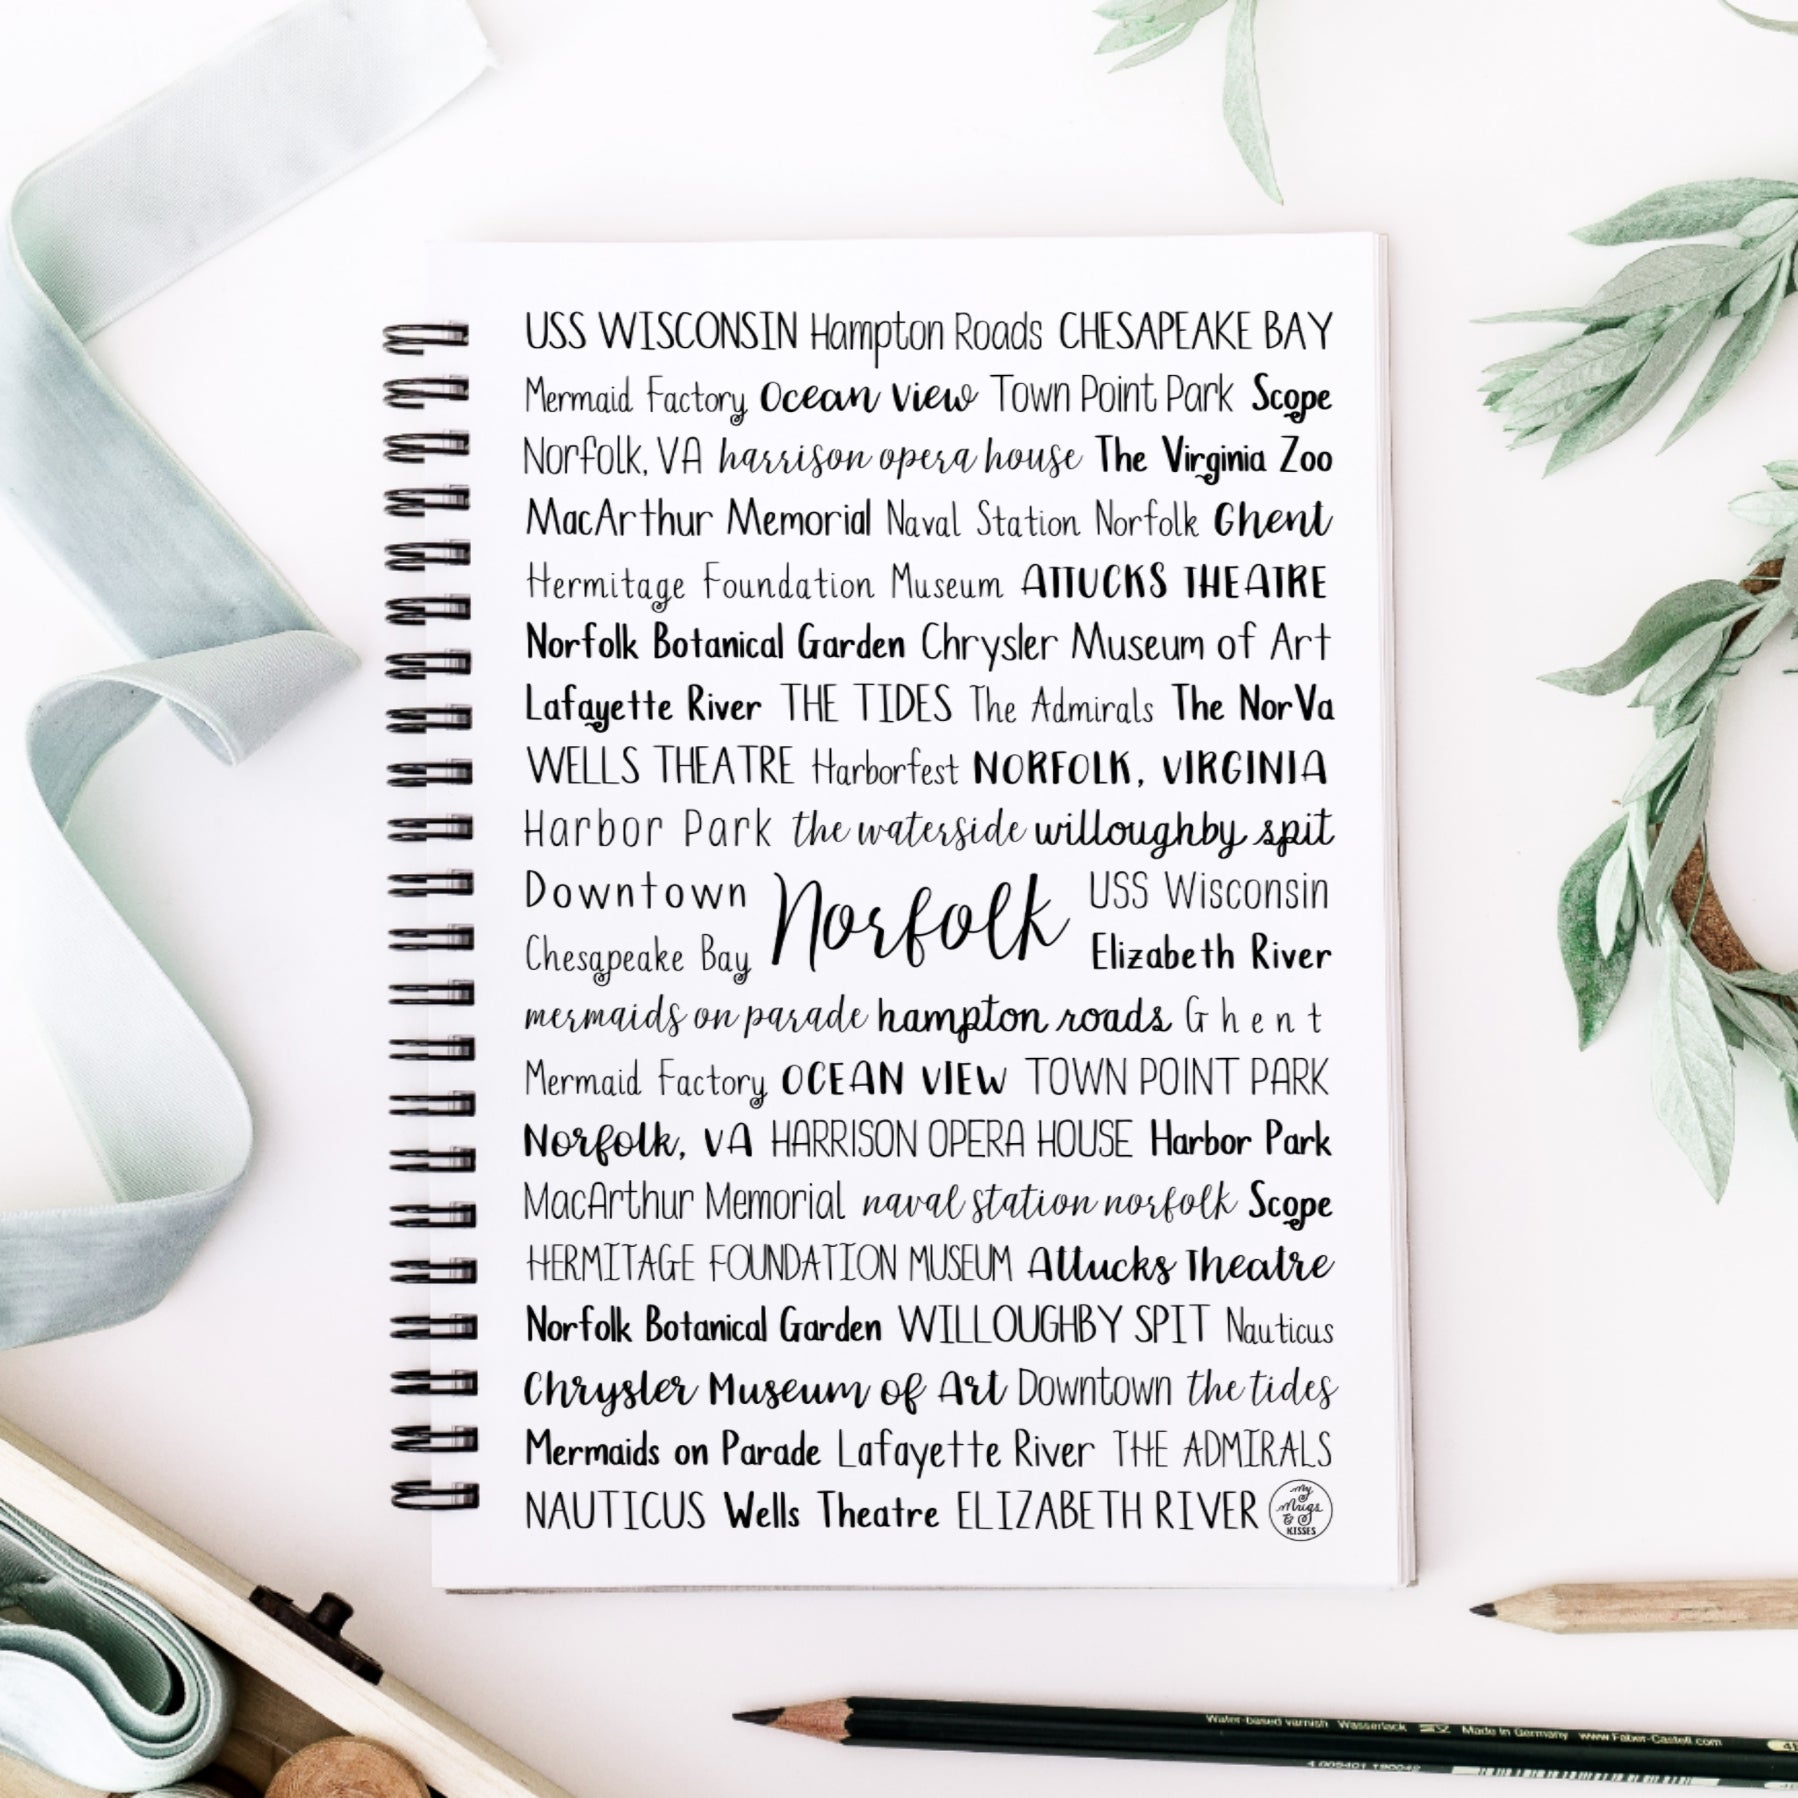 USS WISCONSIN Hampton Roads CHESAPEAKE BAY
Mermaid Factory Ocean View Town Point Park Scope
Norfolk, VA harrison opera house The Virginia Zoo
MacArthur Memorial Naval Station Norfolk Ghent
Hermitage Foundation Museum ATTUCKS THEATRE
Norfolk Botanical Garden Chrysler Museum of Art
Lafayette River THE TIDES The Admirals The NorVa
WELLS THEATRE Harborfest NORFOLK, VIRGINIA
Harbor Park the waterside willoughby spit
Downtown Norfolk USS Wisconsin
Chesapeake Bay Elizabeth River
mermaids on parade hampton roads Ghent
Mermaid Factory OCEAN VIEW TOWN POINT PARK
Norfolk, VA HARRISON OPERA HOUSE Harbor Park
MacArthur Memorial naval station norfolk Scope
HERMITAGE FOUNDATION MUSEUM Attucks Theatre
Norfolk Botanical Garden WILLOUGHBY SPIT Nauticus
Chrysler Museum of Art Downtown the tides
Mermaids on Parade Lafayette River THE ADMIRALS
NAUTICUS Wells Theatre ELIZABETH RIVER
my
Mugs
&
KISSES
Water-based varnish Wasserlack Made in Germany www.Faber-Castell.com
4 005401 190042